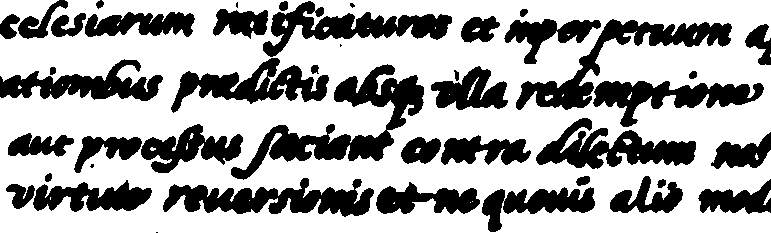 celesiarum ratificaturos et inperpetuum ap
ationibus prædictis absq; vlla redemptione
aut processus faciant contra dilectum nob
virtute reuersionis et ne quouis alio modo